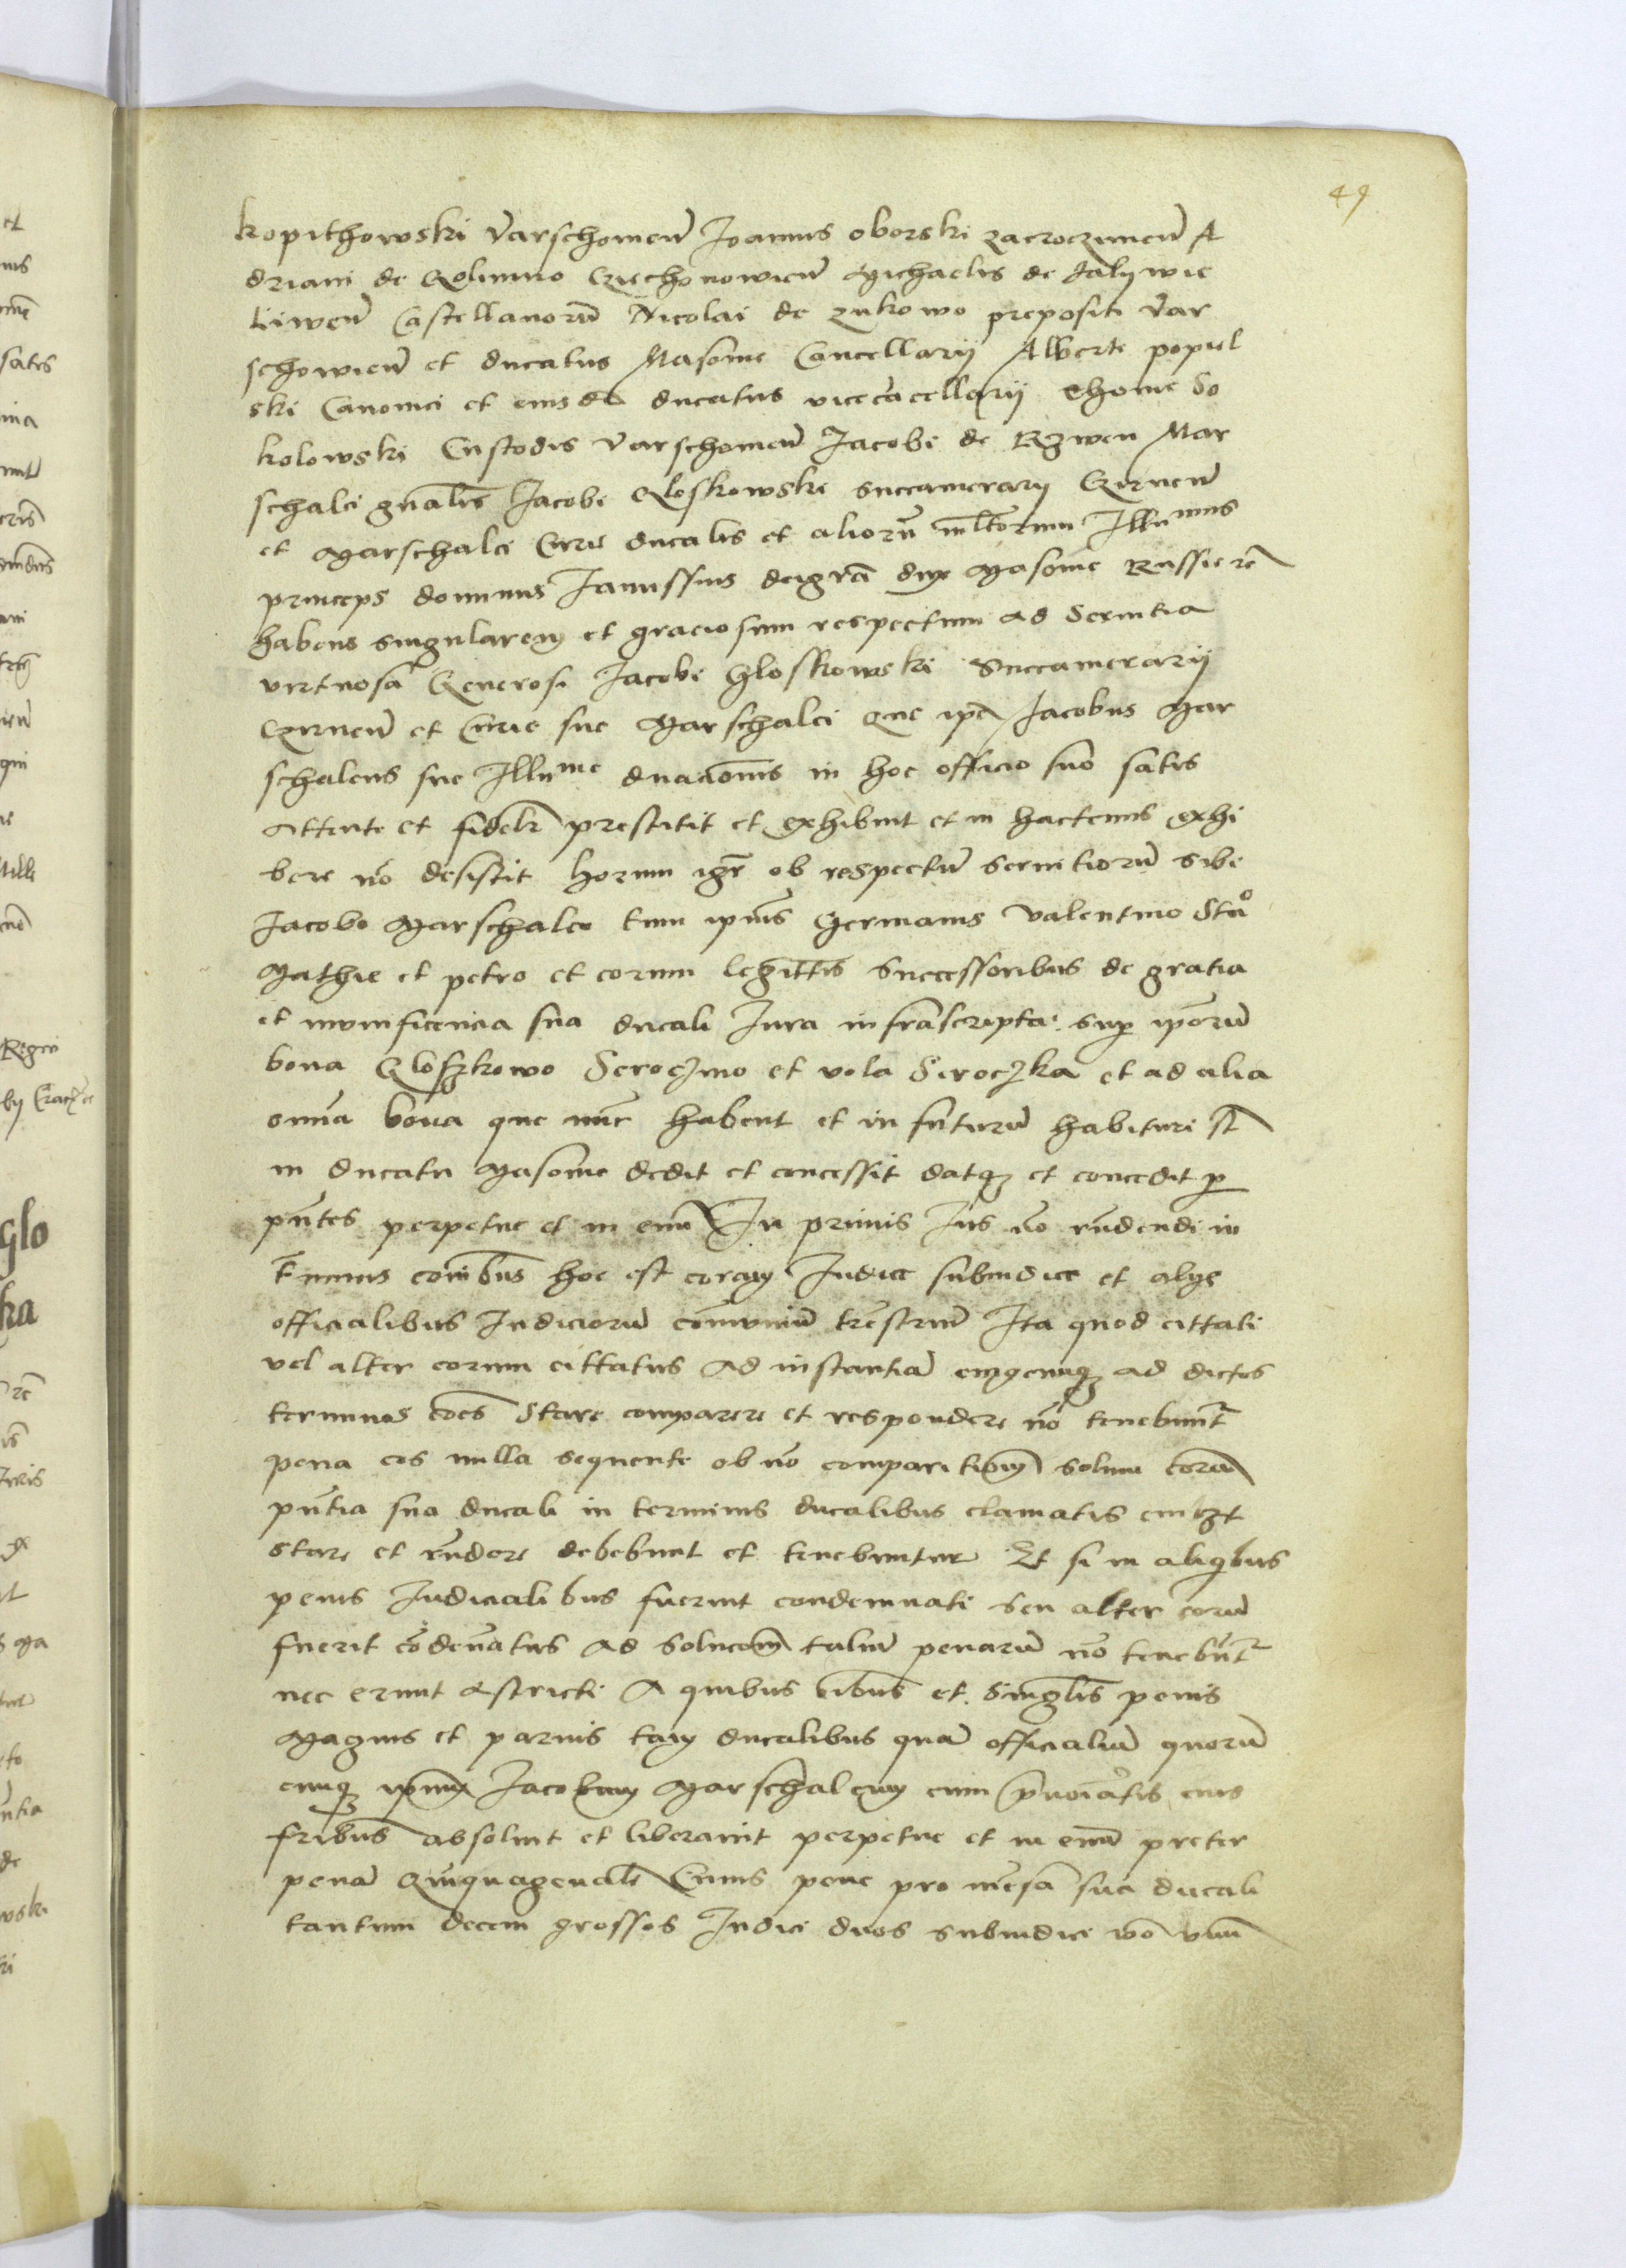 49
kopithowski Varschouien̄ Joannis oborski zacroczimen̄ A
driani de Golimno Cziechonowien̄ Michaelis de Jalywie
Liwen̄ Castellanorū Nicolai de zukowo prepositi Var
schowien̄ et ducatus Masouie Cancellarij Alberti popiel
ski Canonici et eiusdē ducatus vicecācellarij Thome So
kolowski Custodis Varschouien̄ Jacobi de Rzwen Mar
schalci gn̄alis Jacobi Gloskowski succamerarij Czirnen̄
et Marschalci Curie ducalis et aliorū ml̄torum Illumus
princeps dominus Janussius deigrā dux Masouie Russie rc̄
habens singularem et graciosum respectum ad Seruitia
virtuosa Generosi Jacobi Gloskowski Succamerarij
Czirnen̄ et Curie sue Marschalci que ip̄e Jacobus Mar
schalcus sue Illume dn̄acionis in hoc officio suo satis
Attente et fidelr̄ prestitit et exhibuit et in hactenus exhi
bere nō desistit horum igr̄ ob respectū seruitiorū sibi
Jacobo Marschalco tum ipius Germanis Valentino Stāo
Mathie et petro et eorum legittīs Successoribus de gratia
et munificencia sua ducali Jura infrascripta sup ip̄orū
bona Gloszkowo Seroczino et vola Seroczka et ad alia
omīa bona que nūc habent et in futurū habituri sūt
in ducatu Masouie dedit et concessit datq3 et concedit p
pn̄tes perpetue et in euū In primis Jus nō rn̄dendi in
t̄minis cōibus hoc est coram Judice subiudice et alijs
officialibus Judiciorū cōmuniū tr̄estriū Ita quod cittati
vel alter eorum cittatus Ad instantiā cuiuscumq3 ad dictos
terminos cōes Stare comparere et respondere nō tenebunt̄
pena eos nulla sequente ob nō comparitionem solum corā
pn̄tia sua ducali in terminis ducalibus clamatis
stare et rn̄dere debebunt et tenebuntur Et si in aliqibus
penis Judicialibus fuerint condemnati seu alter eorū
fuerit cōdēnatus Ad solucōem taliū penarū nō tenebūt̄
nec erunt astricti A quibus oibus et singlīs penis
Magnis et paruis tam ducalibus quā officialiū quorū
cumq3 ipm̄ Jacobum Marschalcum cum pn̄oīatis eius
fribus absoluit et liberauit perpetue et in euū preter
penā Quīquagenalē Cuius pene pro mēsa sua ducali
tantum decem grossos Judici duos subiudici vō vnū